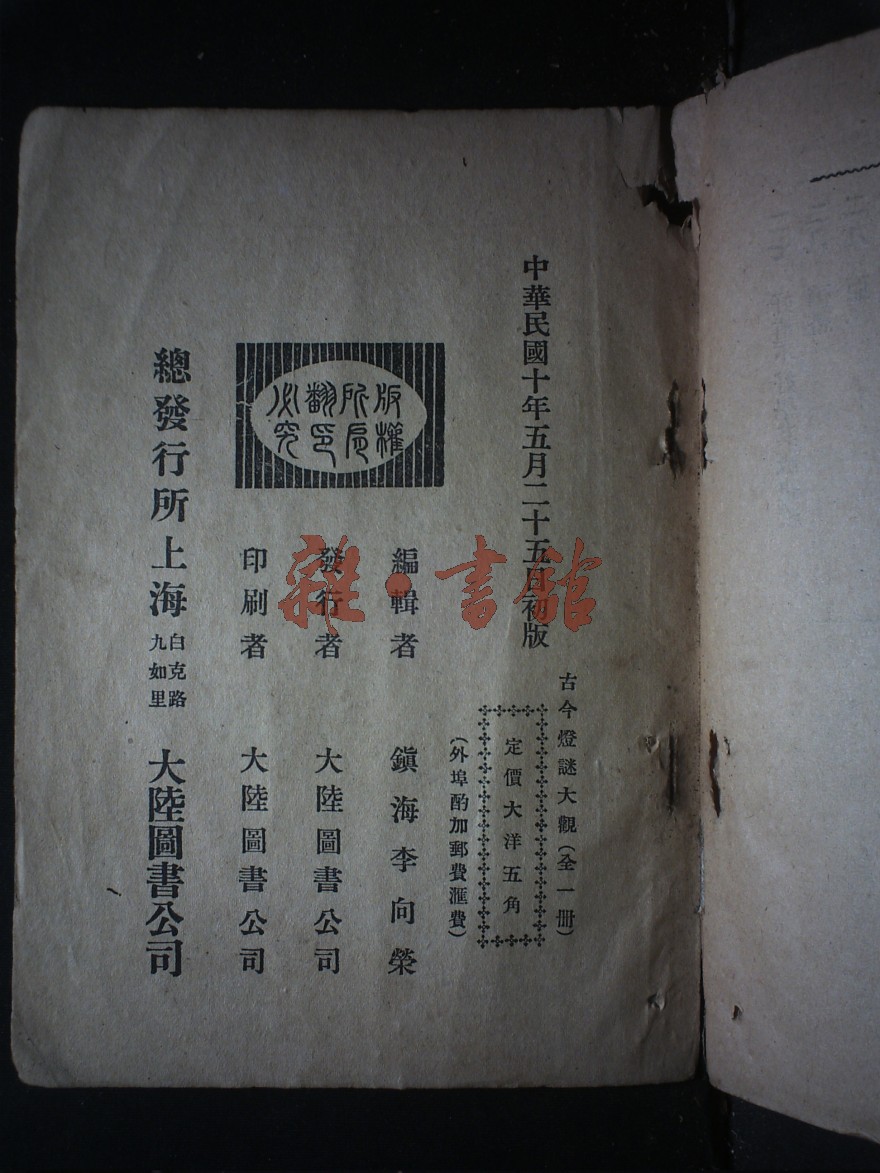 中華民國十年五月二十五日初版
古今燈謎大觀(全一冊)
定價大洋五角
(外埠酌加郵費滙費)
編輯者 鎭海李向榮
發行者 大陸圖書公司
印刷者 大陸圖書公司
版權
所有
翻印
必究
總發行所上海白克路九如里 大陸圖書公司
雜·書館